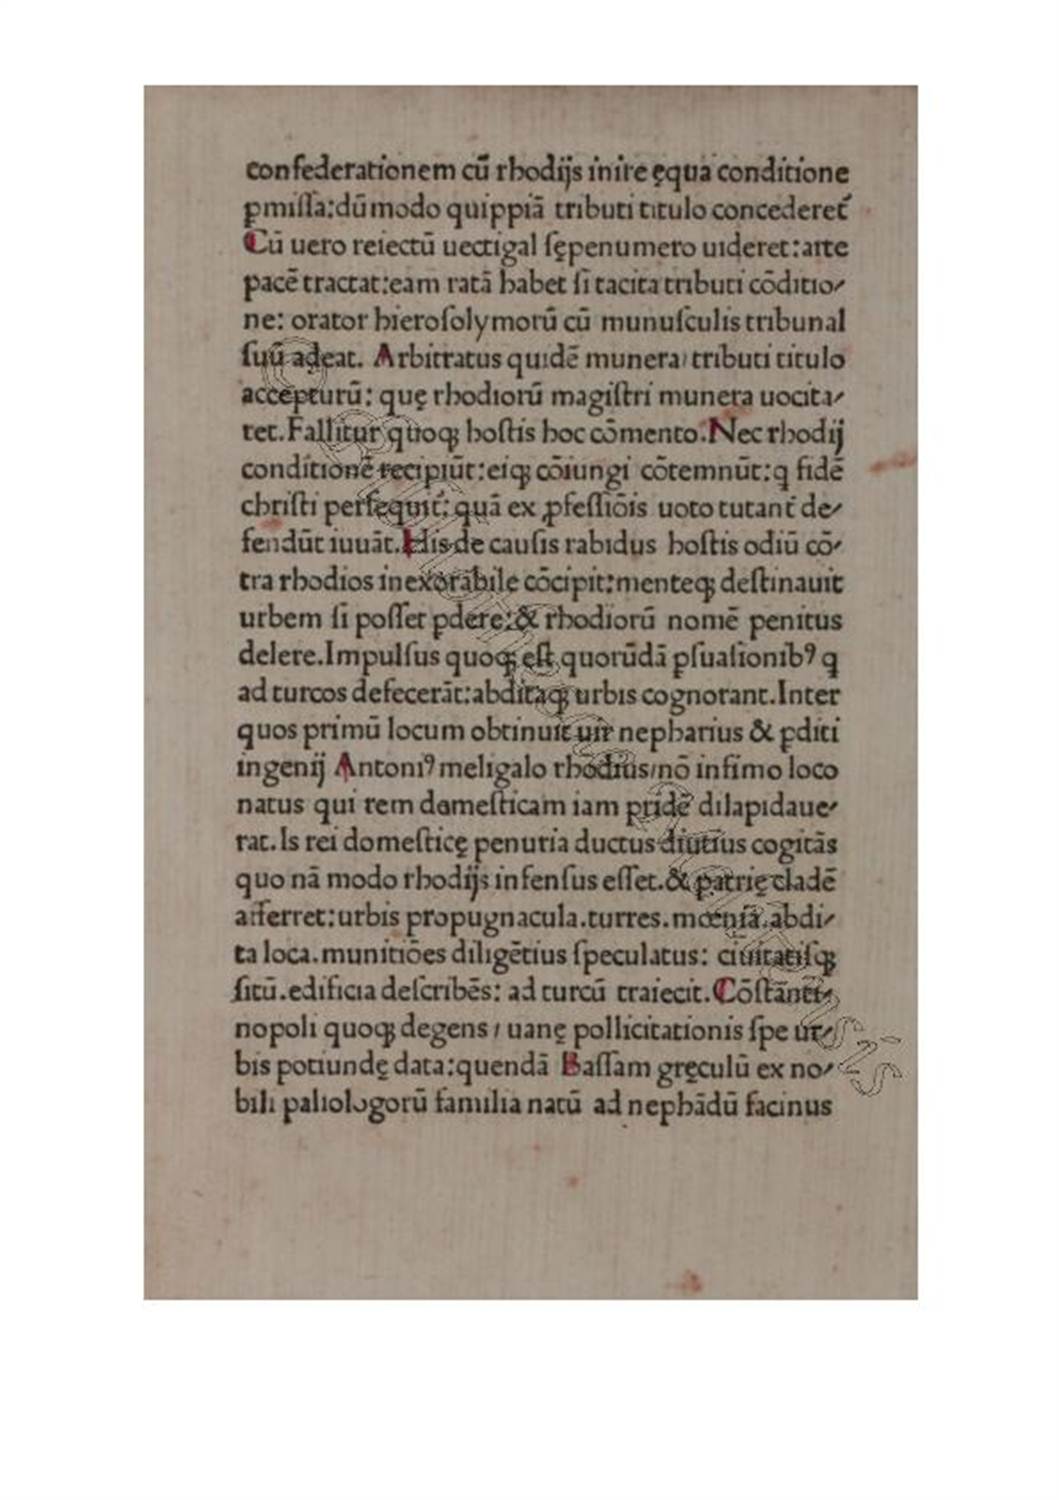 confederationem cū rhodijs inire ęqua conditione
ꝑmiſſa:dūmodo quippiā tributi titulo concederet᷑
Cū uero reiectū uectigal ſępenumero uideret:arte
pacē tractat:eam ratā habet ſi tacita tributi cōditio⸗
ne: orator hieroſolymorū cū munuſculis tribunal
ſuū adeat. Arbitratus quidē munera/tributi titulo
accepturū: quę rhodiorū magiſtri munera uocita⸗
ret.Fallitur quoqꝫ hoſtis hoc cōmento.Nec rhodij
conditionē recipiūt:eiqꝫ cōiungi cōtemnūt:q fidē
chriſti perſequit᷑: quā ex ꝓfeſſiōis uoto tutant᷑ de⸗
fendūt iuuāt.His de cauſis rabidus hoſtis odiū cō⸗
tra rhodios inexorabile cōcipit:menteqꝫ deſtinauit
urbem ſi poſſet ꝑdere:& rhodiorū nomē penitus
delere.Impulſus quoqꝫ eſt quorūdā ꝑſuaſionibꝰ q
ad turcos defecerāt:abditaqꝫ urbis cognorant.Inter
quos primū locum obtinuit uir nepharius & ꝑditi
ingenij Antoniꝰ meligalo rhodius/nō infimo loco
natus qui rem domeſticam iam pridē dilapidaue⸗
rat.Is rei domeſticę penuria ductus diutius cogitās
quo nā modo rhodijs infenſus eſſet.& patrię cladē
afferret:urbis propugnacula.turres.mœnia.abdi⸗
ta loca.munitiōes diligētius ſpeculatus: ciuitatiſqꝫ
ſitū.edificia deſcribēs: ad turcū traiecit.Cōſtāti⸗
nopoli quoqꝫ degens / uanę pollicitationis ſpe ur⸗
bis potiundę data:quendā Baſſam gręculū ex no⸗
bili paliologorū familia natū ad nephādū facinus
© Bibliotheca Apostolica Vaticana